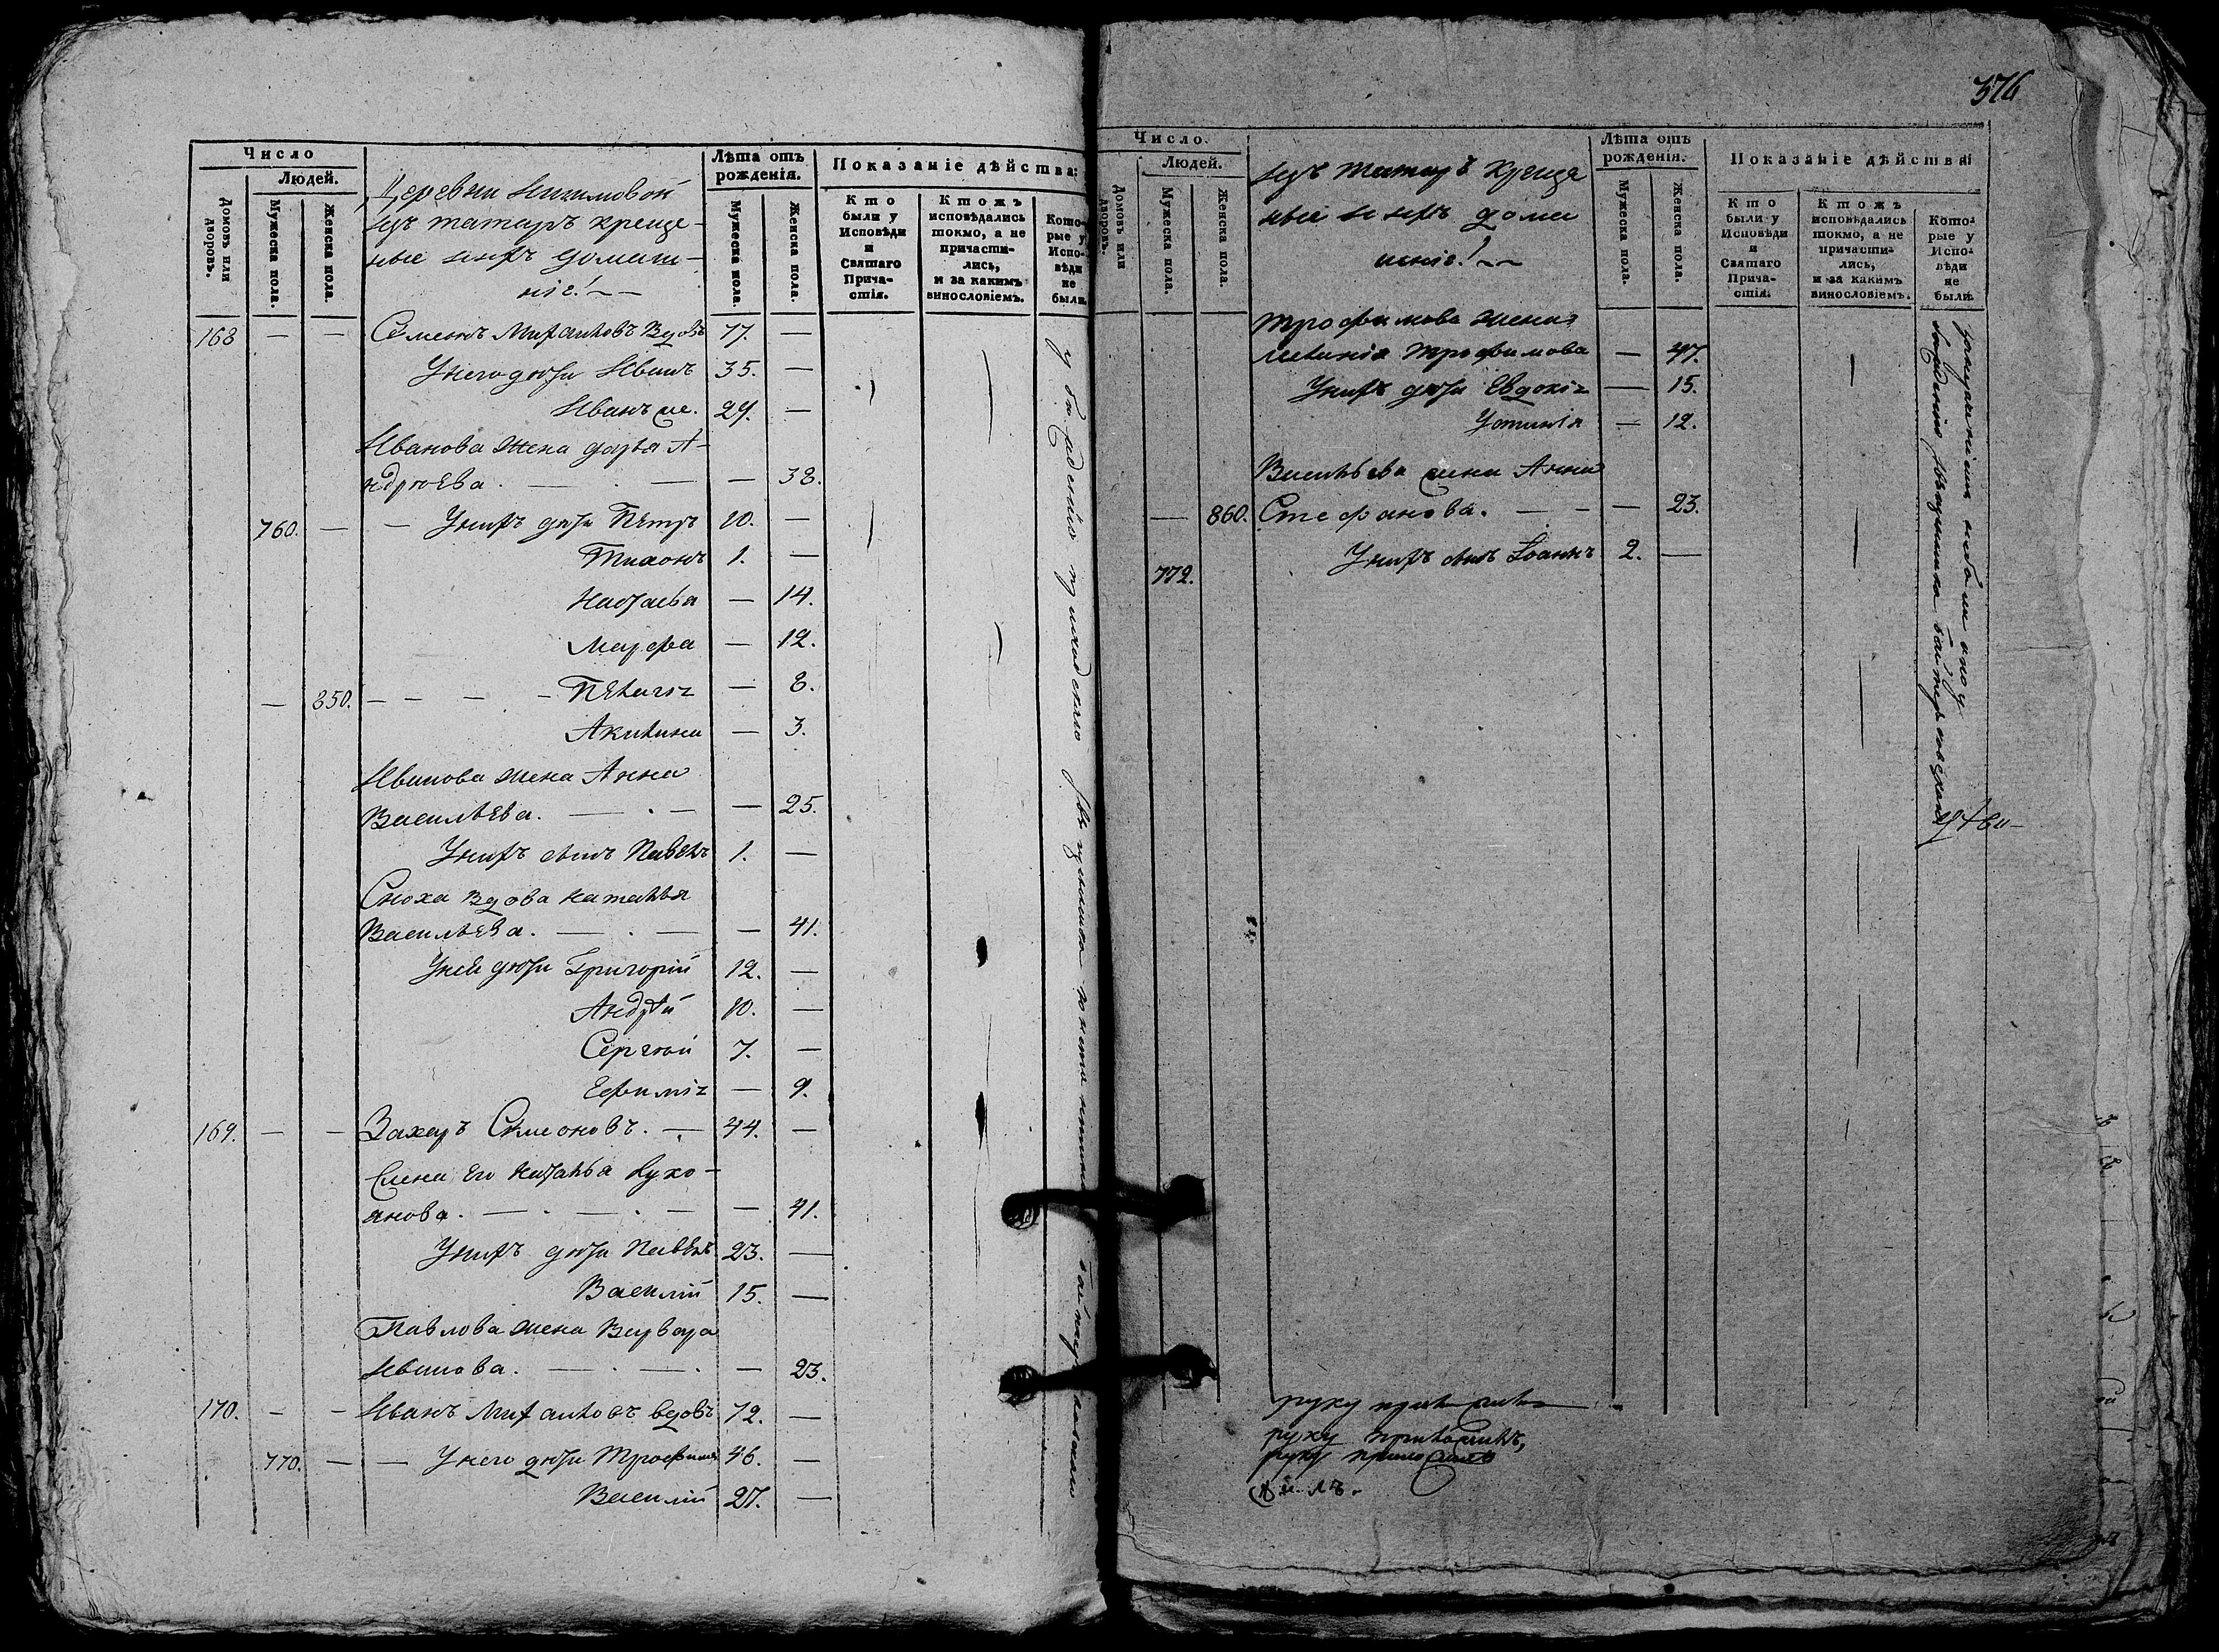 Число
Людей.
Домовъ или дворовъ.
Мужеска пола.
Женска пола.
Деревни
изъ татаръ креще-
ные и ихъ домаш-
ніе!
Лѣта отъ рожденія.
Мужеска пола.
Женска пола.
Показаніе дѣйства:
Кто были у Исповѣди и Святаго Прича-стія.
Ктожъ исповѣдались токмо, а не причасти-лись, и за какимъ винословіемъ.
Кото-рые у Испо-вѣди не были.
168 — — Семенъ Михаиловъ вдовъ 77. —
У него дѣти Иванъ 35. —
Иванъ же. 29. —
Иванова жена Дарья А-
ндрѣева. — — — 38.
760. — — У нихъ дѣти Петръ 10. —
Тихонъ 1. —
Наталья — 14.
Марфа — 12.
— 850. — — — — Пелагія — 8.
Акилина — 3.
Иванова жена Анна
Васильева. — — — 25.
У нихъ сынъ Павелъ 1. —
Сноха вдова Наталья
Васильева. — — — 41.
У ней дѣти Григорій 12. —
Андрей 10. —
Сергѣй 7. —
Ефимія — 9.
169. — — Захаръ Симеоновъ. — 44. —
Жена его Наталья Луко-
янова. — — — — 41.
У нихъ дѣти Павелъ 23. —
Василій 15. —
Павлова жена Варвара
Иванова. — — — 23.
170. — — Иванъ Михаиловъ вдовъ 72. —
770. — — У него дѣти Трофимъ 46. —
Василій 27. —
376
Число.
Людей.
Домовъ или дворовъ.
Мужеска пола.
Женска пола.
изъ татаръ креще
ные и ихъ дома
шніе!
Лѣта отъ рожденія.
Мужеска пола.
Женска пола.
Показаніе дѣйства
Кто были у Исповѣди и Святаго Прича-стія.
Ктожъ исповѣдались токмо, а не причасти-лись, и за какимъ винословіемъ.
Кото-рые у Испо-вѣди не были.
Трофимова жена
Трофимова — 47.
У нихъ дѣти Евдокія — 15.
Устинія — 12.
Васильева жена Анна
— 860. Стефанова. — — — 23.
У нихъ сынъ Іоаннъ 2. —
772.
руку приложилъ
руку приложилъ,
руку приложилъ